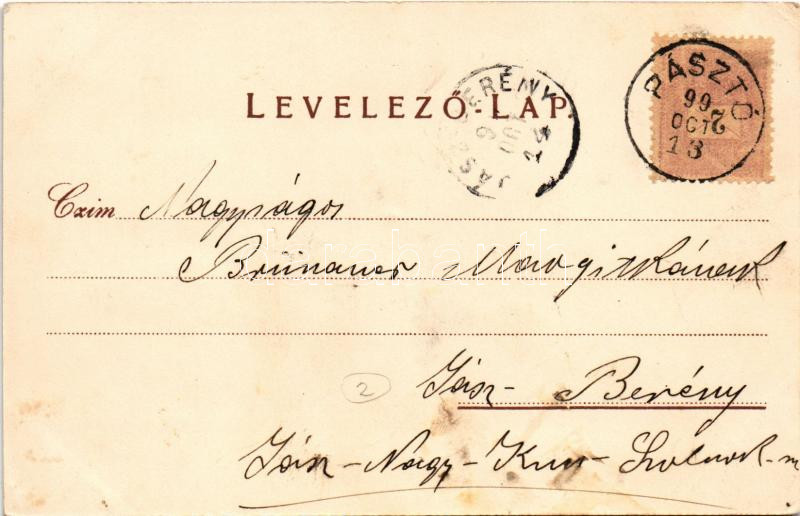 LEVELEZŐ-LAP.
PÁSZTÓ
99
OCT
13
2
Czim Nagyságos
Brünauer Margitkának
2
Jász-Berény
Jász-Nagy-Kun-Szolnok-m